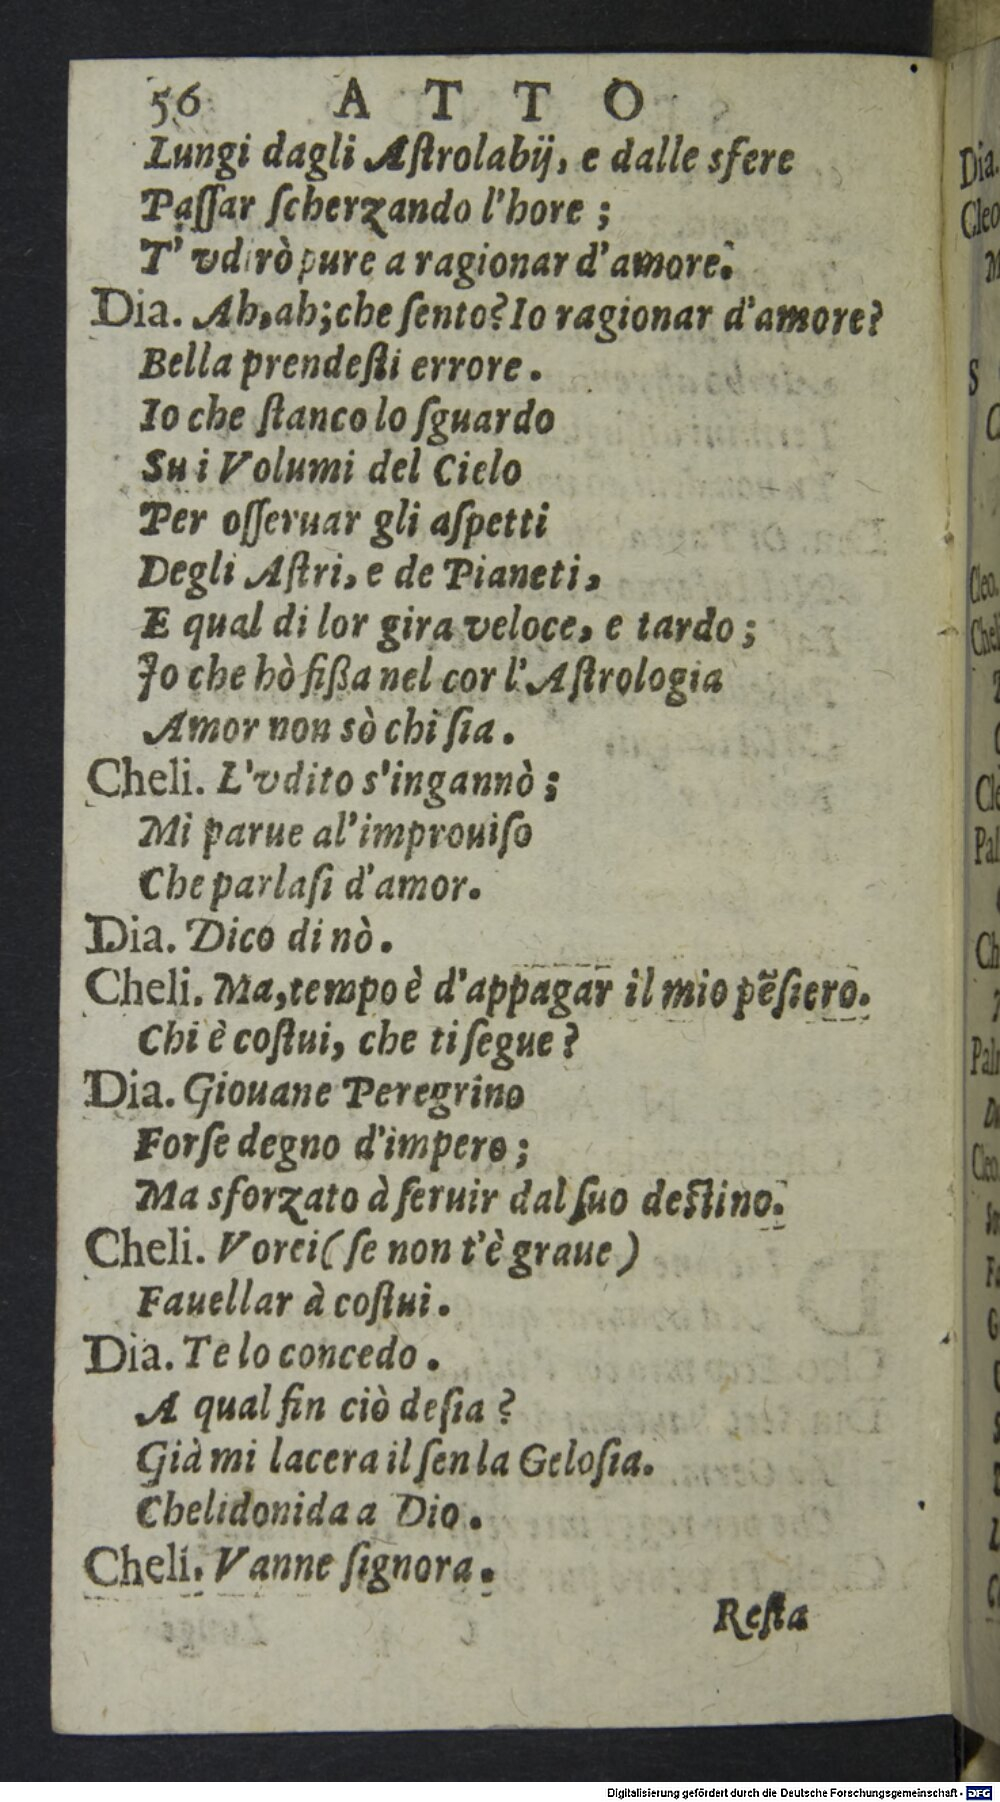 56 ATTO
Lungi dagli Aſtrolabij, e dalle sfere
Paſſar ſcherzando l'hore ;
T' vdirò pure a ragionar d'amore.
Dia. Ah, ah; che ſento? Io ragionar d'amore?
Bella prendeſti errore.
Io che ſtanco lo ſguardo
Su i Volumi del Cielo
Per oſſeruar gli aſpetti
Degli Aſtri, e de Pianeti,
E qual di lor gira veloce, e tardo ;
Io che hò fißa nel cor l'Aſtrologia
Amor non sò chi ſia.
Cheli. L'vdito s'ingannò ;
Mi parue al'improuiſo
Che parlaſi d'amor.
Dia. Dico di nò.
Cheli. Ma, tempo è d'appagar il mio pẽſiero.
Chi è coſtui, che ti ſegue ?
Dia. Giouane Peregrino
Forſe degno d'impero ;
Ma sforzato à ſeruir dal ſuo deſtino.
Cheli. Vorei ( ſe non t'è graue )
Fauellar à coſtui.
Dia. Te lo concedo.
A qual fin ciò deſia ?
Già mi lacera il ſen la Geloſia.
Chelidonida a Dio.
Cheli. Vanne ſignora.
Reſta
Dia.
Cleo
Cleo.
Cheli
Pal
Ch
Pal
Cleo
Digitalisierung gefördert durch die Deutsche Forschungsgemeinschaft - DFG